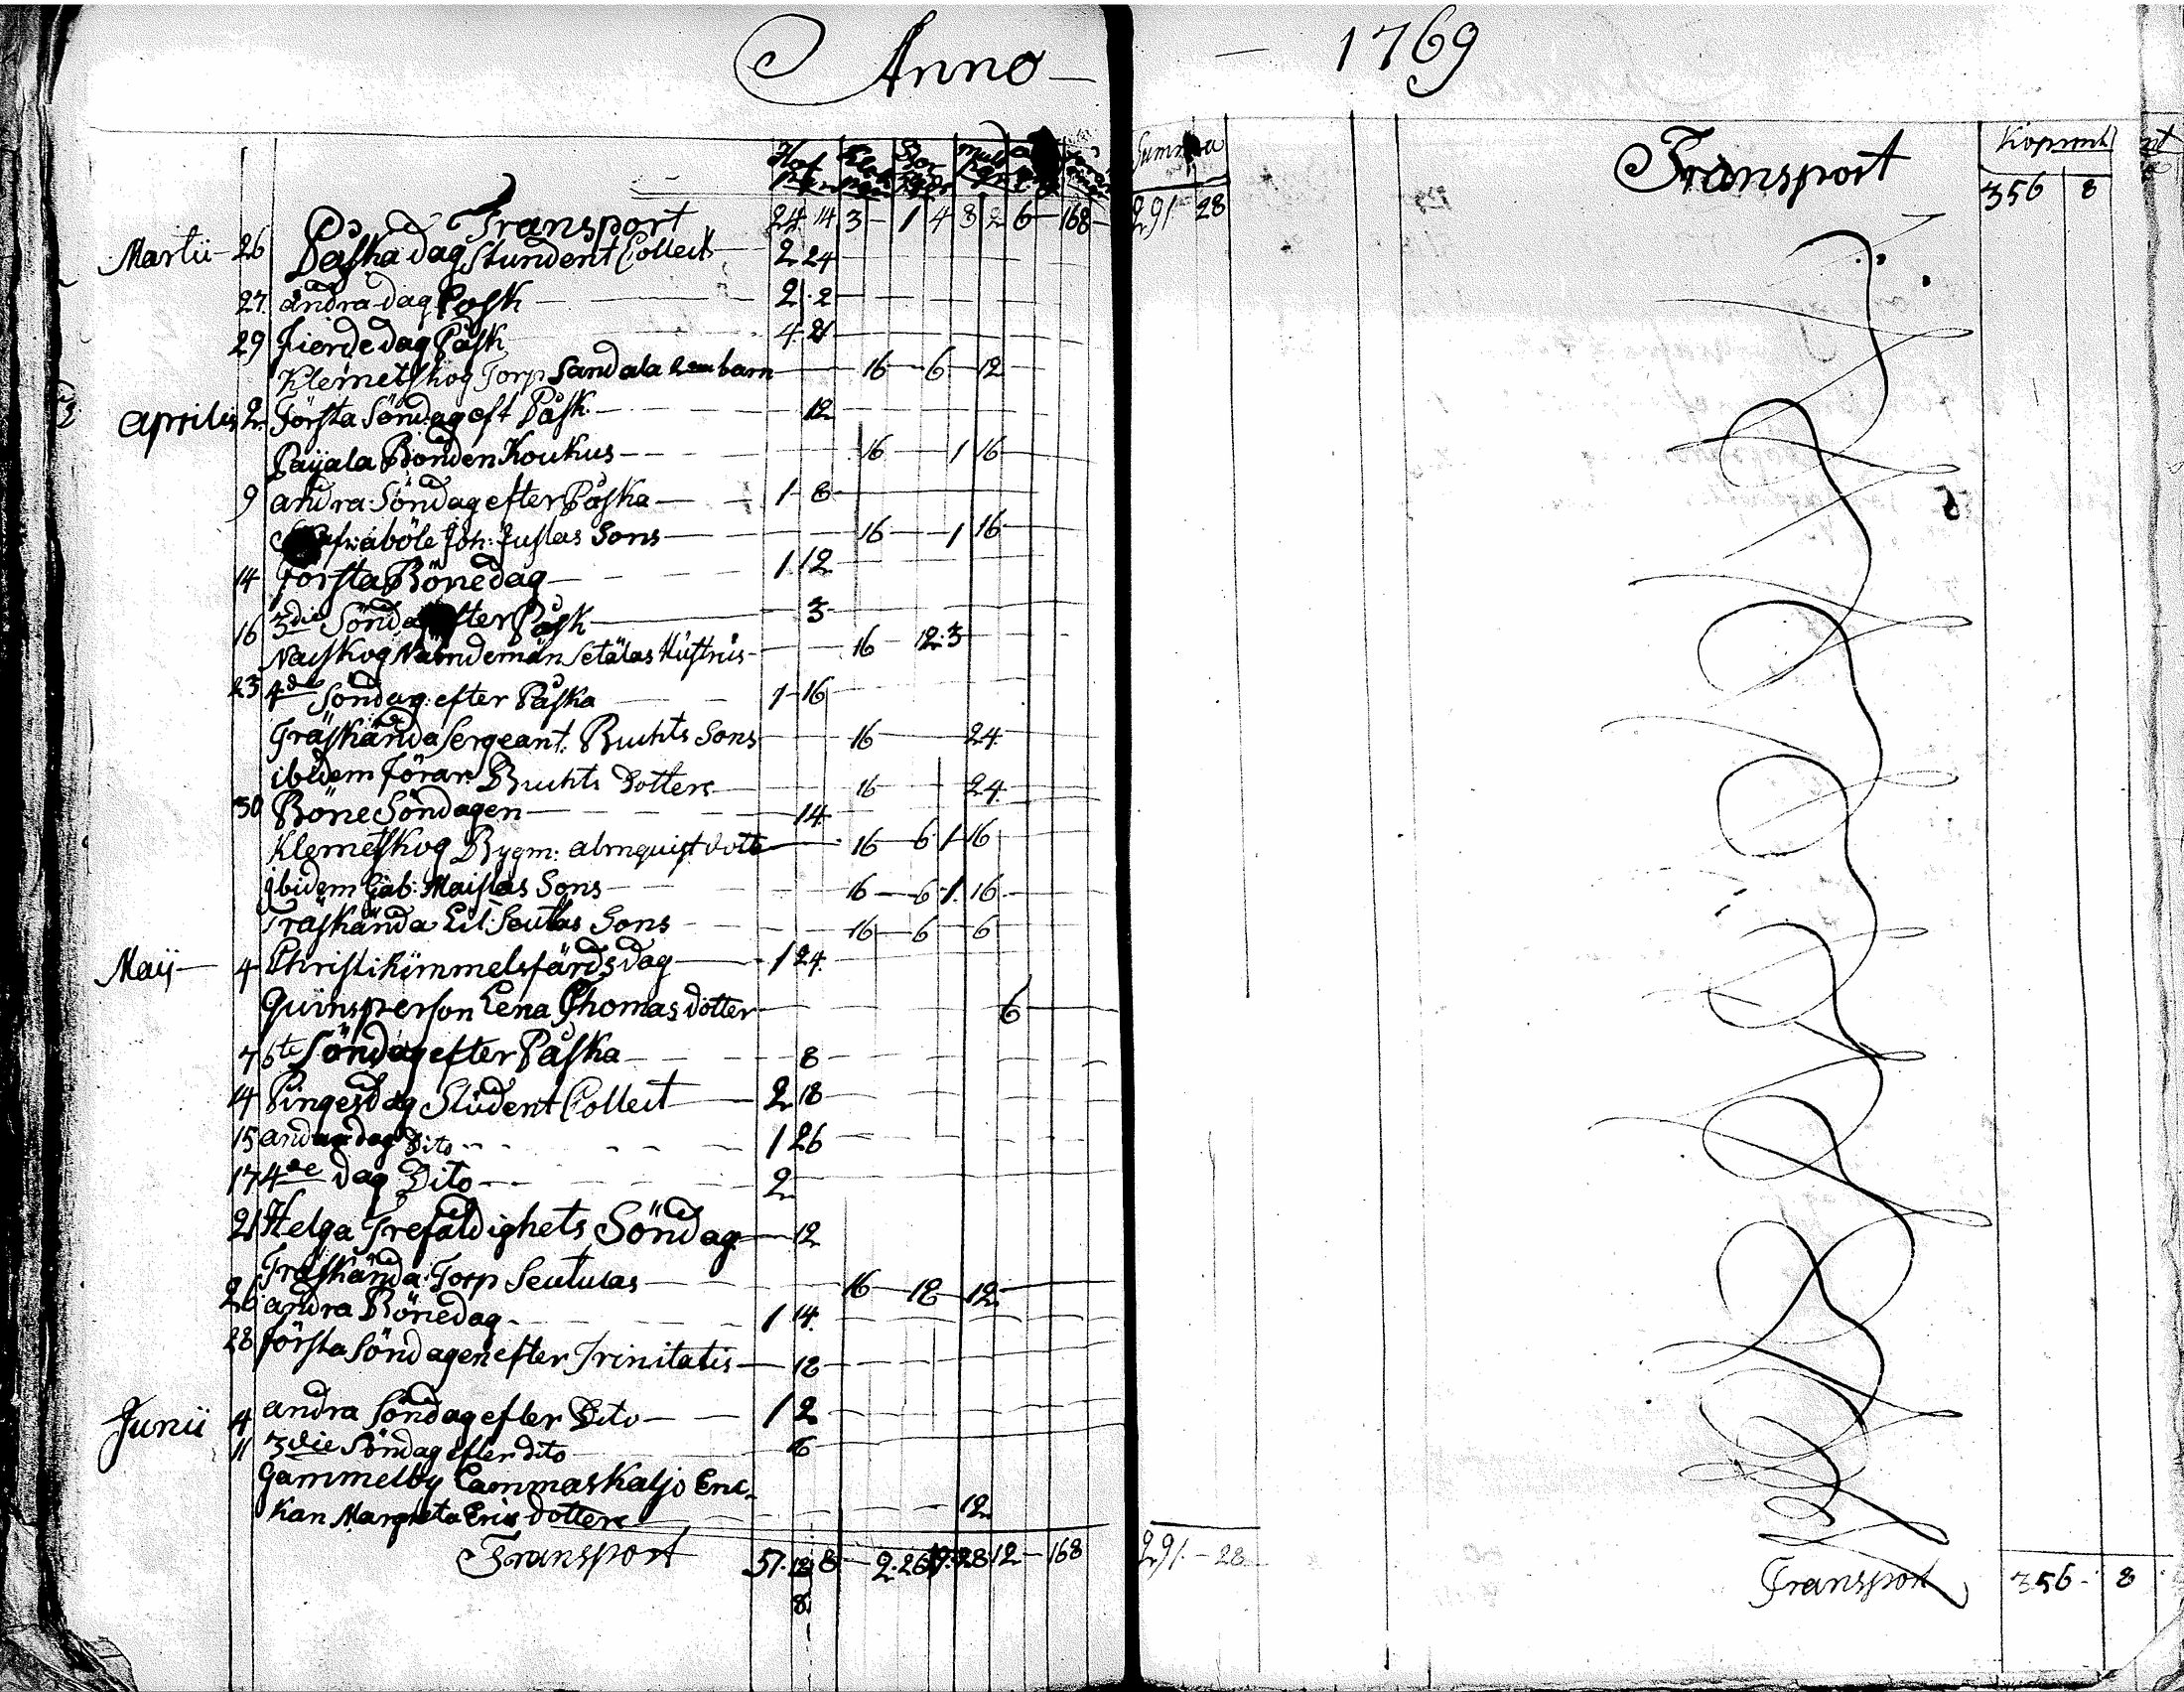 Anno — 1769
Transport 24 14 3 — 1 4 3 2 6 — 168 —
Martii 26 Påska dag Stundent Collect 2 24
27. andra dag Påsk 2 2
29 Fierde dag Påsk 4 21
Klemetskog Torp Sandala barn 16 6 12
Aprilis 2. Första Söndag eft Påsk 12
Payala Bonden Koukus 16 1 16
9 andra Söndag efter Påska 1 8
Joh: Justas Sons 16 1 16
14 Första Bönedag 1 12
16 3die Söndag efter Påsk 3
Naiskog Nämndeman Setälas Hustrus 16 12 3
23 4de Söndag efter Påska 1 16
Träskända Sergeant. Buchts Sons 16 24
ibidem Förar Buchts Dotters 16 24
30 Böne Söndagen 14
Klemetskog Bygm: almquist dott 16 6 1 16
Ibidem Gab: Maislas Sons 16 6 1 16
Träskända Seutlas Sons 16 6 6
Maij 4 Christi Himmelsfärds dag 1 24
Quinsperson Lena Thomas dotter 6
7 6te Söndag efter Påska 8
14 Pingesdag Student Collect 2 18
15 andra dag Dito 1 26
17 4de dag Dito 2
21 Helga Trefaldighets Söndag 12
Träskända Torp Seutulas 16 12 12
26 andra Bönedag 1 14
28 första Söndagen efter Trinitatis 12
Junii 4 andra Söndag efter Dito 1 2
11 3die Söndag efter dito 16
Gammelby Lammaskaljo Enc-
kan Margreta Eric dotters 12
Transport 51. 12 8 — 2. 26 19. 28 12 — 168
8
Summa
291 28
291 — 28
Transport
Kopmnt
356 8
Transport 356 — 8